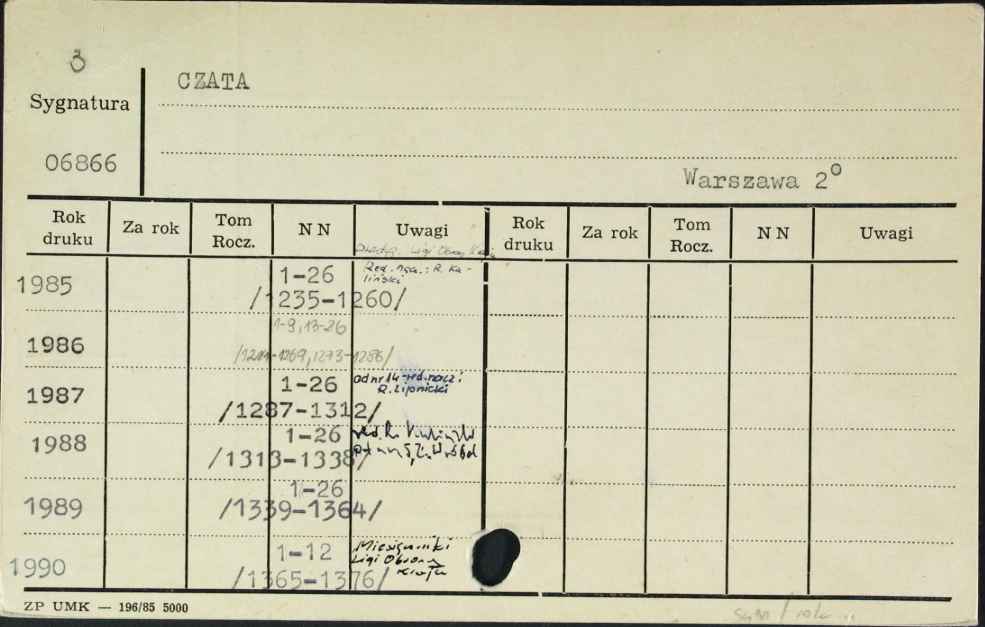 3
CZATA
Sygnatura
06866
Warszawa 2°
Rok druku Za rok Tom Rocz. N N Uwagi Rok druku Za rok Tom Rocz. N N Uwagi
Ligi Obrony Kraju
1985 1-26 Red. nacz.: R. Ka-
liński
/1235-1260/
1-9, 13-26
1986 1269, 1273-1286/
1987 1-26 od nr 14 red. nacz.:
R. Lipnicki
/1287-1312/
1988 1-26 red. R.
/1313-1338/ od nr 5, Z. Wróbel
1-26
1989 /1339-1364/
1990 1-12 Miesięcznik
Ligi Obrony
/1365-1376/ Kraju
ZP UMK — 196/85 5000